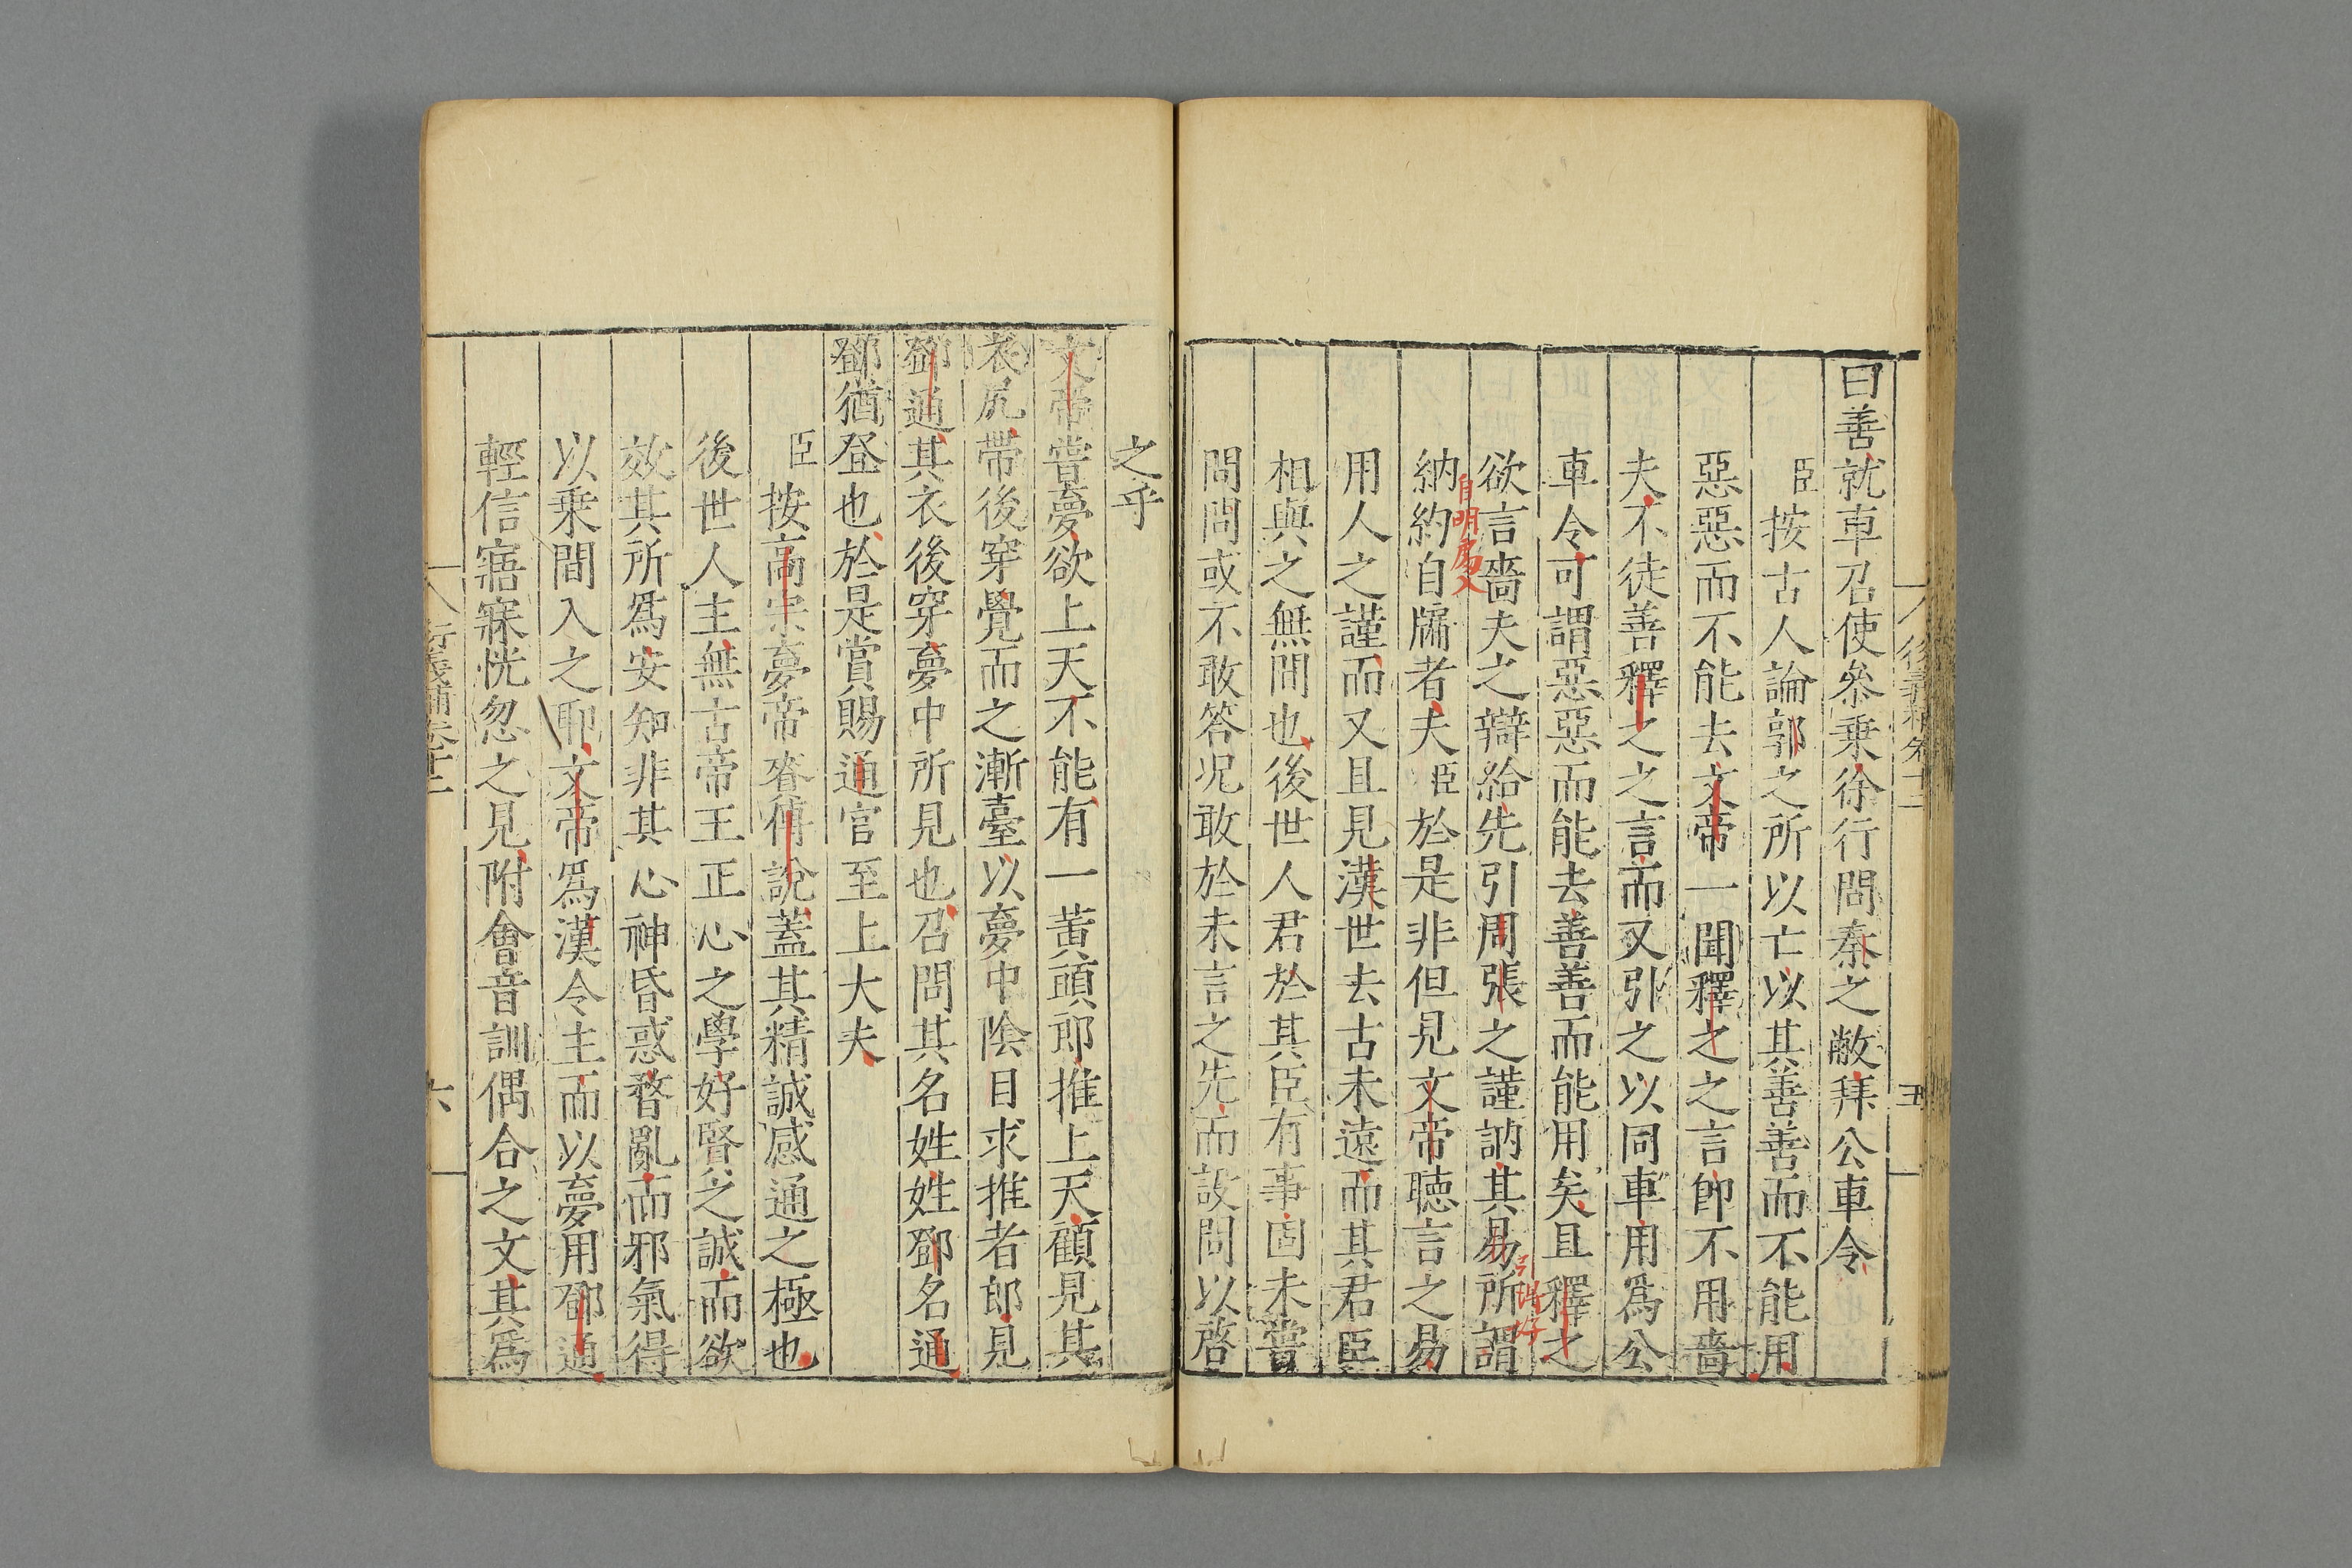 曰善就車召使參乗徐行問秦之敝拜公車令
臣按古人論郭之所以亡以其善善而不能用
惡惡而不能去文帝一聞釋之之言卽不用嗇
夫不徒善釋之之言而又引之以同車用爲公
車令可謂惡惡而能去善善而能用矣且釋之
欲言嗇夫之辯給先引周張之謹訥其易所謂
納約自牖者夫臣於是非但見文帝聴言之易
自明處入
用人之謹而又且見漢世去古未遠而其君臣
相與之無間也後世人君於其臣有事固未嘗
問問或不敢答况敢於未言之先而設問以啓
之乎
文帝嘗夢欲上天不能有一黄頭郎推上天顧見其
衣尻帶後穿覺而之漸臺以夢中陰目求推者郎見
鄧通其衣後穿夢中所見也召問其名姓姓鄧名通
鄧猶登也於是賞賜通官至上大夫
臣按高宗夢帝賚傅說蓋其精誠感通之極也
後世人主無古帝王正心之學好賢之誠而欲
效其所爲安知非其心神昏惑瞀亂而邪氣得
以乗間入之耶文帝爲漢令主而以夢用鄧通
輕信寤寐恍忽之見附會音訓偶合之文其爲
六